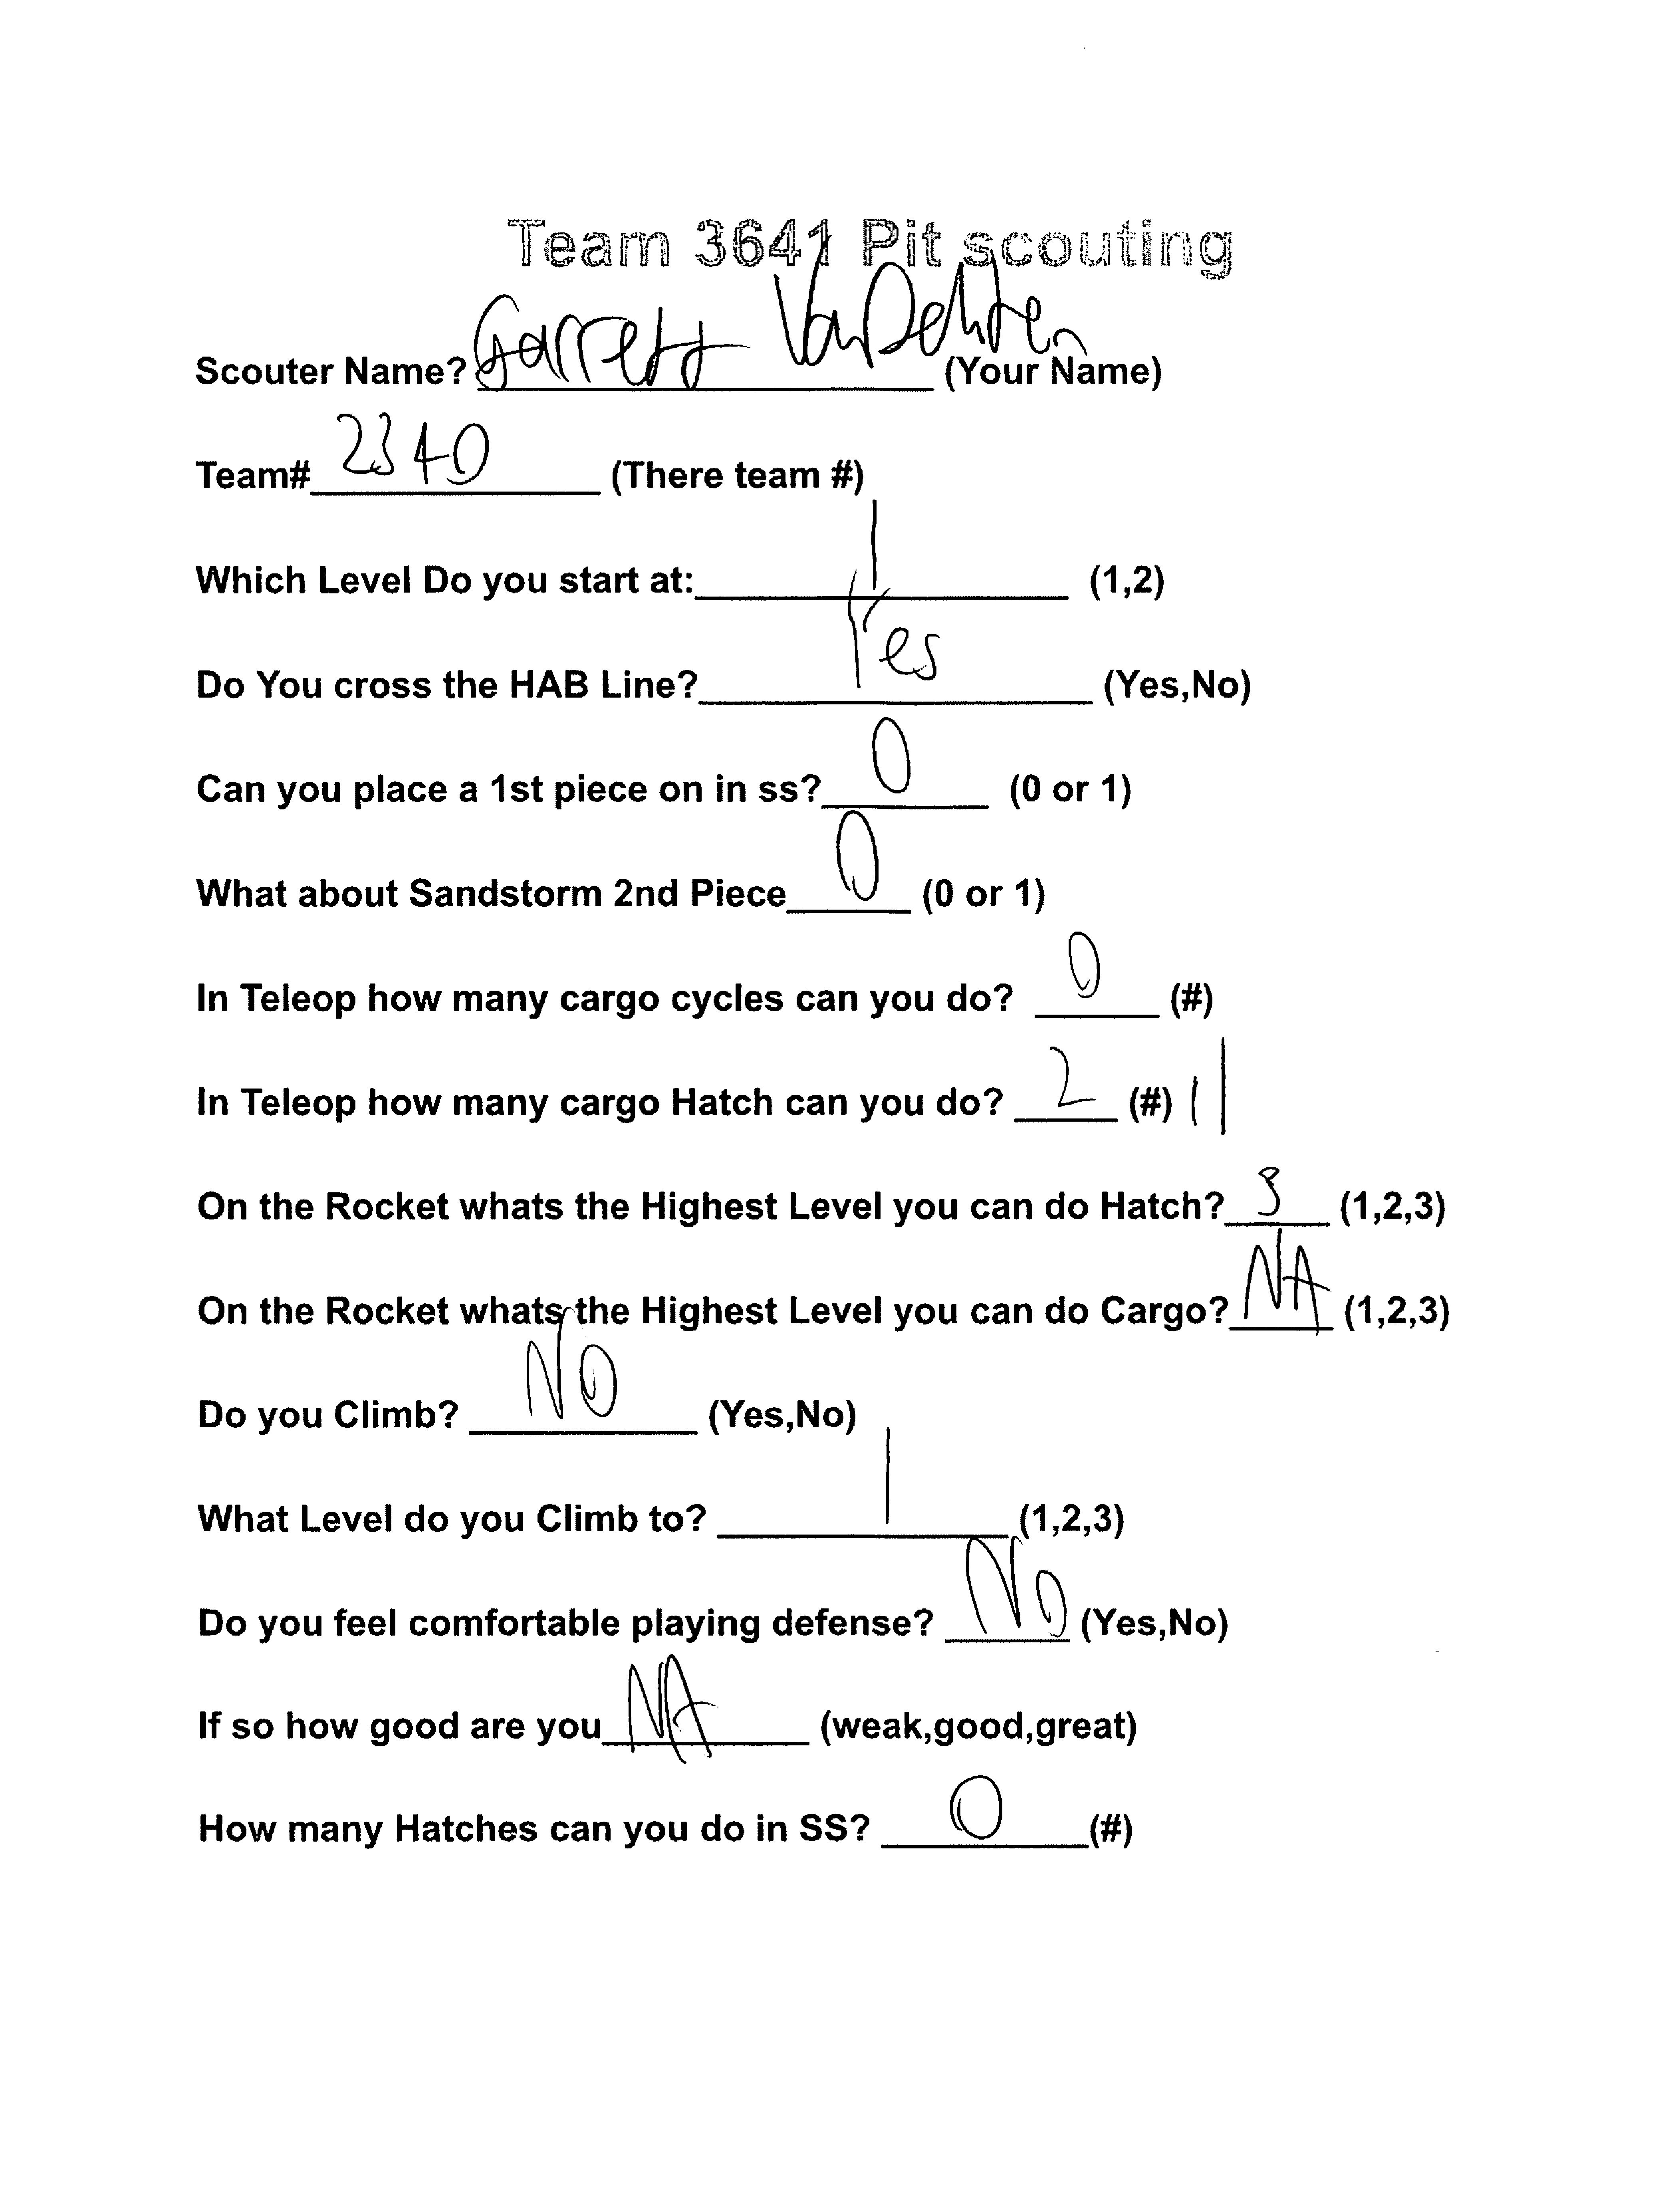 Team 3641 Pit scouting
Scouter Name? Garrett (Your Name)
Team# 2340 (There team #)
Which Level Do you start at: 1 (1,2)
Do You cross the HAB Line? Yes (Yes,No)
Can you place a 1st piece on in ss? 0 (0 or 1)
What about Sandstorm 2nd Piece 0 (0 or 1)
In Teleop how many cargo cycles can you do? 0 (#)
In Teleop how many cargo Hatch can you do? 2 (#) 11
On the Rocket whats the Highest Level you can do Hatch? 3 (1,2,3)
On the Rocket whats the Highest Level you can do Cargo? NA (1,2,3)
Do you Climb? NO (Yes,No)
What Level do you Climb to? 1 (1,2,3)
Do you feel comfortable playing defense? No (Yes,No)
If so how good are you NA (weak,good,great)
How many Hatches can you do in SS? 0 (#)